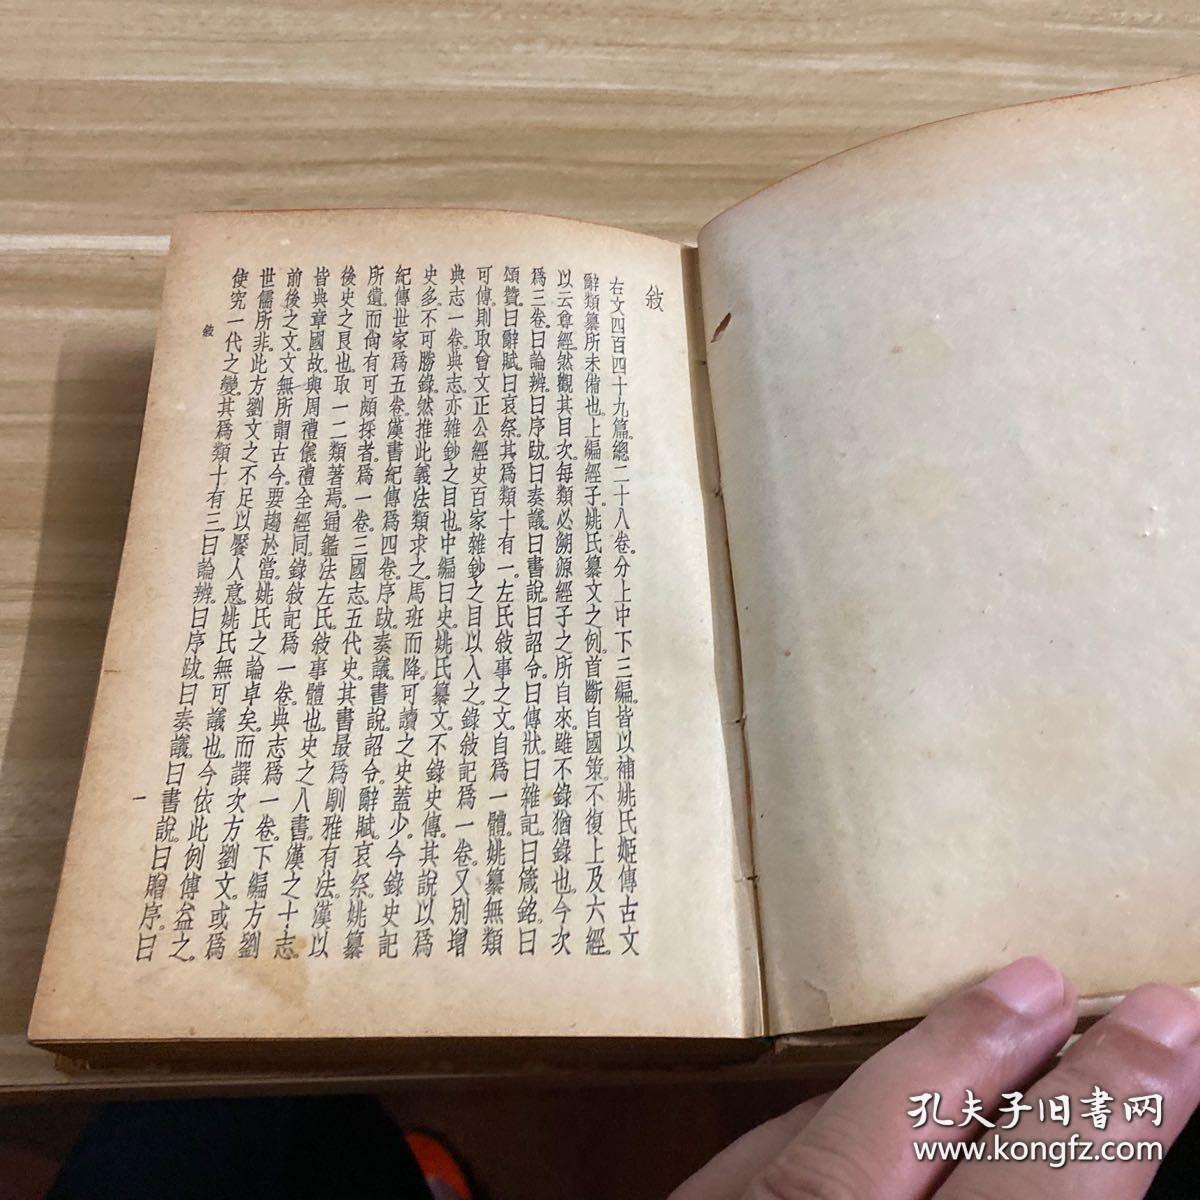 敍
右文四百四十九篇。總二十八卷。分上中下三編。皆以補姚氏姬傳古文
辭類纂所未備也。上編經子。姚氏纂文之例。首斷自國策。不復上及六經。
以云尊經。然觀其目次。每類必溯源經子之所自來。雖不錄猶錄也。今次
爲三卷。曰論辨。曰序跋。曰奏議。曰書說。曰詔令。曰傳狀。曰雜記。曰箴銘。曰
頌贊。曰辭賦。曰哀祭。其爲類十有一。左氏敍事之文。自爲一體。姚纂無類
可傳。則取曾文正公經史百家雜鈔之目以入之。錄敍記爲一卷。又別增
典志一卷。典志。亦雜鈔之目也。中編曰史。姚氏纂文。不錄史傳。其說以爲
史多。不可勝錄。然推此義法類求之。馬班而降。可讀之史蓋少。今錄史記
紀傳世家爲五卷。漢書紀傳爲四卷。序跋。奏議。書說。詔令。辭賦。哀祭。姚纂
所遺而尙有可頗採者。爲一卷。三國志。五代史。其書最爲馴雅有法。漢以
後史之艮也。取一二類著焉。通鑑法左氏。敍事體也。史之八書。漢之十志。
皆典章國故。與周禮儀禮全經同。錄敍記爲一卷。典志爲一卷。下編方劉
前後之文。文無所謂古今。要趨於當。姚氏之論卓矣。而譔次方劉文。或爲
世儒所非。此方劉文之不足以饜人意。姚氏無可議也。今依此例傅益之。
使究一代之變。其爲類十有三。曰論辨。曰序跋。曰奏議。曰書說。曰贈序。曰
敍
一
孔夫子旧书网
www.kongfz.com